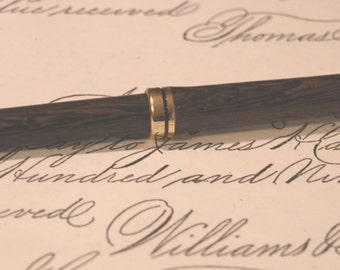 received
Thomas
pay to James H
Hundred and Nin
Williams &